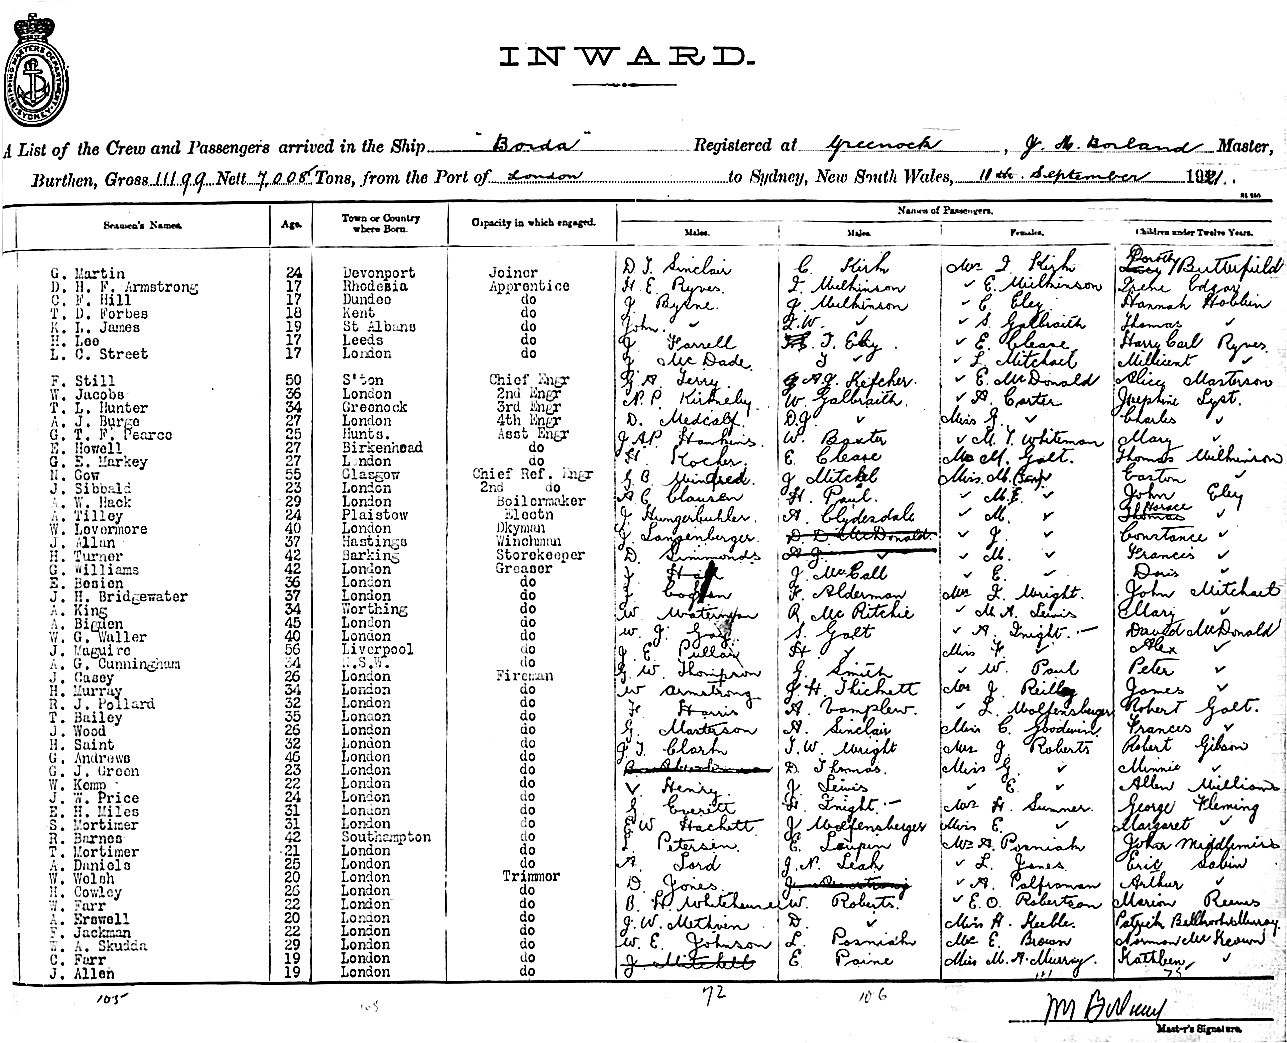 SHIPPING MASTERS DEPARTMENT SYDNEY
INWARD.
A List of the Crew and Passengers arrived in the Ship "Borda" Registered at Greenock, J. M. Borland Master,
Burthen, Gross 11199 Nett 7,008 Tons, from the Port of London to Sydney, New South Wales, 11th September 1921.
Names of Passengers.
Seamen's Names. Age. Town or Country where Born. Capacity in which engaged. Males. Males. Females. Children under Twelve Years.
G. Martin 24 Devonport Joiner D J. Sinclair C. Kirk Mrs I Kirk Dorothy Butterfield
D. H. F. Armstrong 17 Rhodesia Apprentice H. E. Ryves J. Wilkinson ✓ E. Wilkinson Irene Edgar
C. F. Hill 17 Dundee do J Byrne. J Wilkinson ✓ C Eley Hannah
T. D. Forbes 18 Kent do John. ✓ J. W. ✓ ✓ S. Galbraith Thomas ✓
K. L. James 19 St Albans do J Farrell J. Eley ✓ E. Clease Harry Carl Ryves
H. Lee 17 Leeds do J McDade J ✓ ✓ L. Mitchell Millicent ✓
L. C. Street 17 London do
F. Still 50 S'ton Chief Engr G A. Terry A. J. Kefcher. ✓ E. McDonald Alice Masterson
W. Jacobs 36 London 2nd Engr N. P. W. Galbraith ✓ A. Carter Josephine Lyst.
T. L. Hunter 34 Greenock 3rd Engr D. Medcalf. D. J. ✓ Miss J. ✓ Charles ✓
A. J. Burge 27 London 4th Engr
G. T. F. Pearce 25 Hunts. Asst Engr J A.P. Hawkins. W. Baxter ✓ M. T. Whiteman Mary ✓
E. Howell 27 Birkenhead do H Kocher. E. Clease Mrs M. Galt. Thomas Wilkinson
G. E. Markey 27 London do
N. Gow 55 Glasgow Chief Ref. Engr G. B. Mindred. J Mitchel Miss M. Easton ✓
J. Sibbald 23 London 2nd do A C Clausen H. Paul. ✓ M. E. ✓ John Eley
A. W. Hack 29 London Boilermaker
A. Tilley 24 Plaistow Electn J Hungerbuhler. A. Clydesdale ✓ M. ✓ Horace
W. Lovermore 40 London Dkyman J Langenberger. D. D McDonald ✓ J. ✓ Constance ✓
J. Allan 37 Hastings Winchman
H. Turner 42 Barking Storekeeper D. Simmonds A J. ✓ ✓ M. ✓ Francis ✓
G. Williams 42 London Greaser J J. McCall ✓ E. ✓ Doris ✓
E. Benien 36 London do
J. H. Bridgewater 37 London do F. Alderman Mrs I. Wright. John Mitchell
A. King 34 Worthing do W Waterman R. McRitchie ✓ M. A. Lewis Mary ✓
A. Bigden 45 London do W. J. Gay. S. Galt ✓ A. Knight. David McDonald
W. G. Waller 40 London do
J. Maguire 56 Liverpool do J. E. Pullar H. Y Miss F. ✓ Alex ✓
A. G. Cunningham 34 N.S.W. do J. W. Thompson J. Smith ✓ W. Paul Peter ✓
J. Casey 26 London Fireman
H. Murray 34 London do W Armstrong. J H. Thickett Mrs J. Reilly James ✓
R. J. Pollard 32 London do H Harris A. Vamplew. ✓ L. Wolfensberger Robert Galt.
T. Bailey 35 London do
J. Wood 26 London do G. Masterson A. Sinclair Miss C. Goodwin Frances ✓
H. Saint 32 London do J. J. Clark J. W. Wright Mrs. J Roberts Robert Gibson
G. Andrews 46 London do
G. J. Green 23 London do D. Thomas. Miss G. ✓ Minnie ✓
W. Kemp 22 London do V Henry. J. Lewis ✓ E. ✓ Allen Williams
J. W. Price 24 London do G. Everett H. Knight. Mrs H. Sumner. George Fleming
E. H. Miles 31 London do
S. Mortimer 31 London do E W Hackett. J Wolfensberger Miss E. ✓ Margaret ✓
R. Barnes 42 Southampton do L. Petersen. E. Loupin Mrs A. Posniak John Middlemiss
T. Mortimer 21 London do
A. Daniels 25 London do A. Lord J. N. Leah ✓ L Jones Eric Sabin
W. Welsh 20 London Trimmer D. Jones. J. Armstrong ✓ A. Palframan Arthur ✓
H. Cowley 26 London do
W. Farr 22 London do B. H. Whitehouse W. Roberts. ✓ E. O. Robertson Marion Reeves
A. Erswell 20 London do J. W. Methven D. ✓ Miss A. Keeble. Patrick Murray
F. Jackman 22 London do
W. A. Skudda 29 London do W. E. Johnson L. Posniak Mrs E. Brown Norman McKeown
C. Farr 19 London do J. Mitchell E Paine Miss M. A. Murray. Kathleen ✓
J. Allen 19 London do
105 108 72 106 75
Master's Signature.